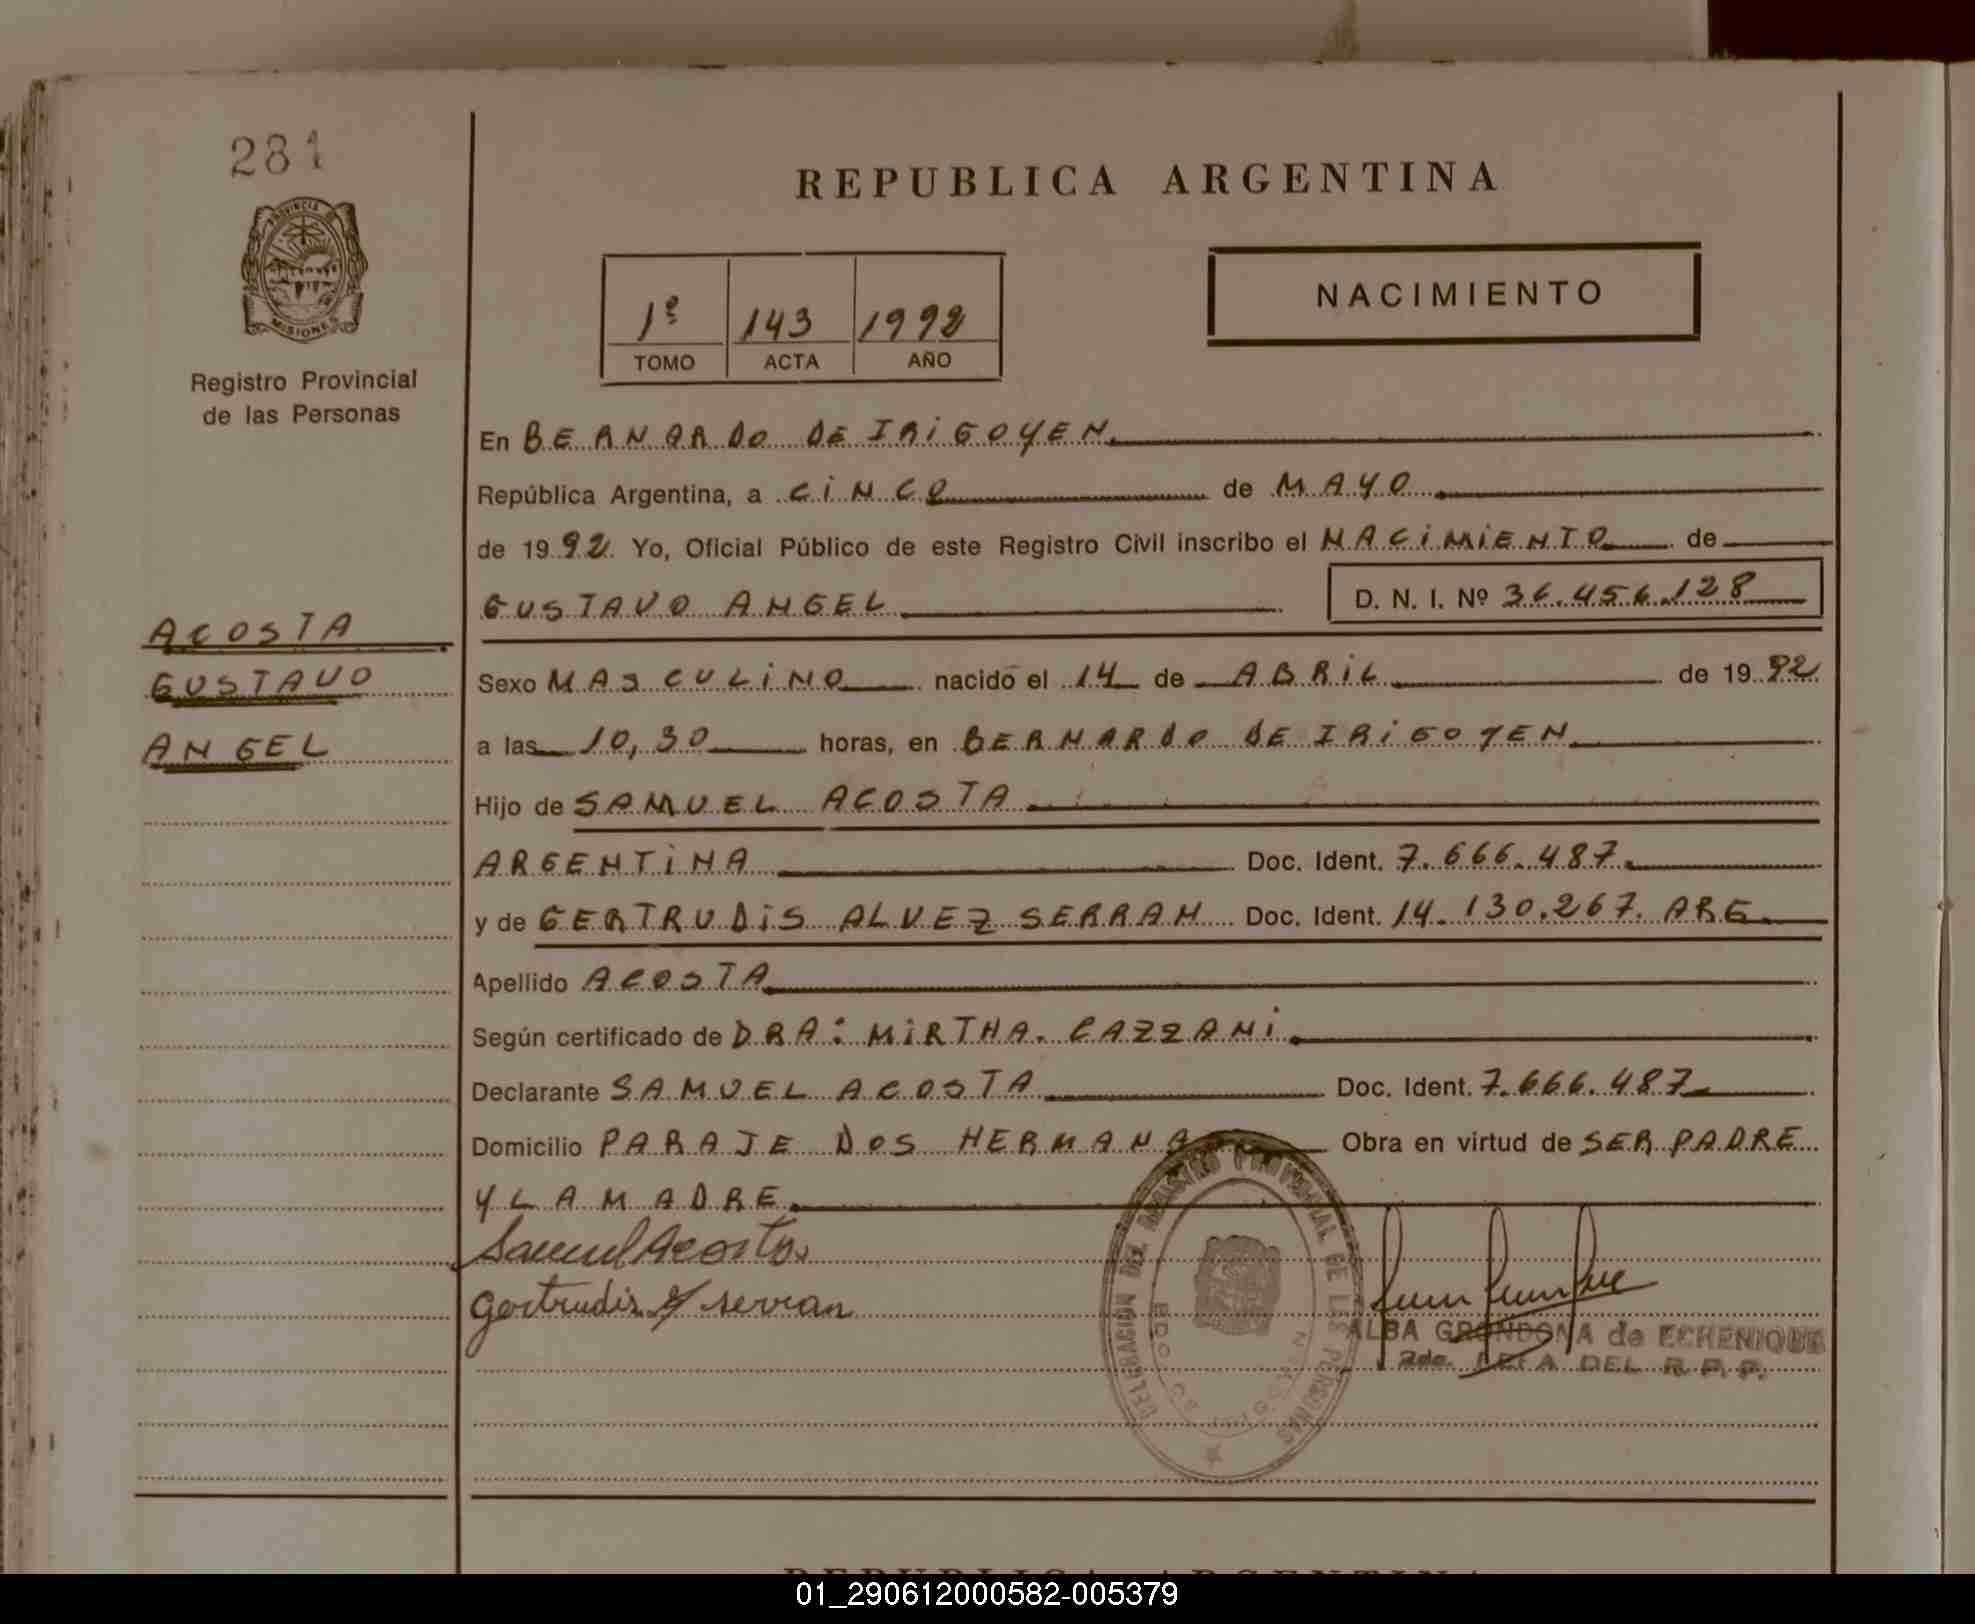 281
PROVINCIA DE
MISIONES
Registro Provincial
de las Personas
ACOSTA
GUSTAVO
ANGEL
REPUBLICA ARGENTINA
1º 143 1992
TOMO ACTA AÑO
NACIMIENTO
En BERNARDO DE IRIGOYEN.
República Argentina, a CINCO de MAYO
de 1992. Yo, Oficial Público de este Registro Civil inscribo el NACIMIENTO de
GUSTAVO ANGEL D. N. I. Nº 36.456.128
Sexo MASCULINO nacido el 14 de ABRIL de 1992
a las 10,30 horas, en BERNARDO DE IRIGOYEN
Hijo de SAMUEL ACOSTA
ARGENTINA Doc. Ident. 7.666.487.
y de GERTRUDIS ALVEZ SERRAN Doc. Ident. 14.130.267. ARG.
Apellido ACOSTA
Según certificado de DRA: MIRTHA. CAZZANI.
Declarante SAMUEL ACOSTA Doc. Ident. 7.666.487
Domicilio PARAJE DOS HERMANA Obra en virtud de SER PADRE
Y LA MADRE.
Samuel Acosta
Gertrudis serran
DELEGACION DEL REGISTRO PROVINCIAL DE LAS PERSONAS
BDO. DE IRIGOYEN
ALBA GRONDONA de ECHENIQUE
2da. JEFA DEL R. P. P.
REPUBLICA ARGENTINA
01_290612000582-005379